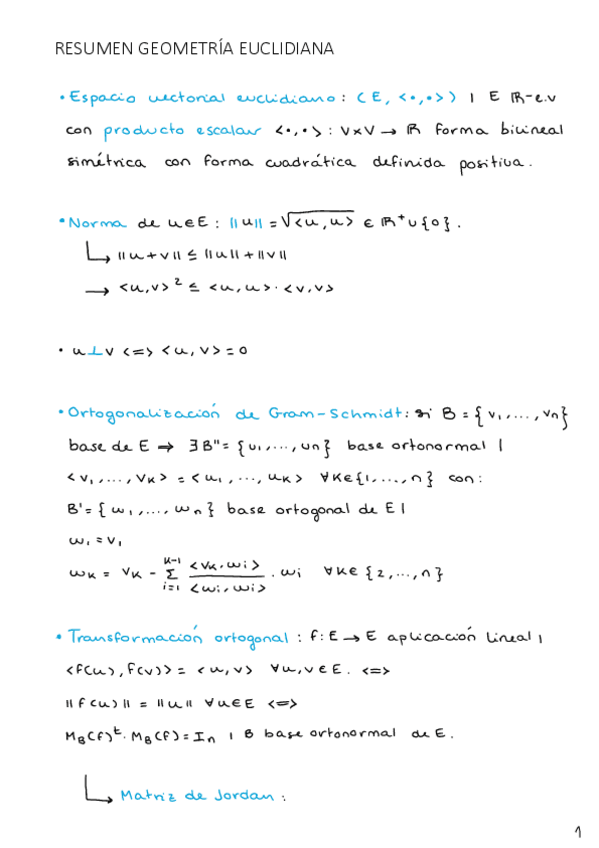 RESUMEN GEOMETRÍA EUCLIDIANA
• Espacio vectorial euclidiano: (E, <•,•>) | E ℝ-e.v
con producto escalar <•,•>: V×V → ℝ forma bilineal
simétrica con forma cuadrática definida positiva.
• Norma de u∈E: ||u|| = √<u,u> ∈ ℝ⁺∪{0}.
↳ ||u+v|| ≤ ||u||+||v||
→ <u,v>² ≤ <u,u>·<v,v>
• u⊥v <=> <u,v>=0
• Ortogonalización de Gram-Schmidt: si B = {v₁,...,vn}
base de E => ∃B''= {u₁,...,un} base ortonormal |
<v₁,...,vK> = <u₁,...,uK> ∀K∈{1,...,n} con:
B'={w₁,...,wn} base ortogonal de E |
w₁=v₁
wK = vK - Σ_{i=1}^{K-1} <vK,wi>/<wi,wi> · wi ∀K∈{2,...,n}
• Transformación ortogonal: f:E→E aplicación lineal |
<f(u),f(v)> = <u,v> ∀u,v∈E. <=>
||f(u)|| = ||u|| ∀u∈E <=>
M_B(f)ᵗ·M_B(f)=In | B base ortonormal de E.
↳ Matriz de Jordan:
1